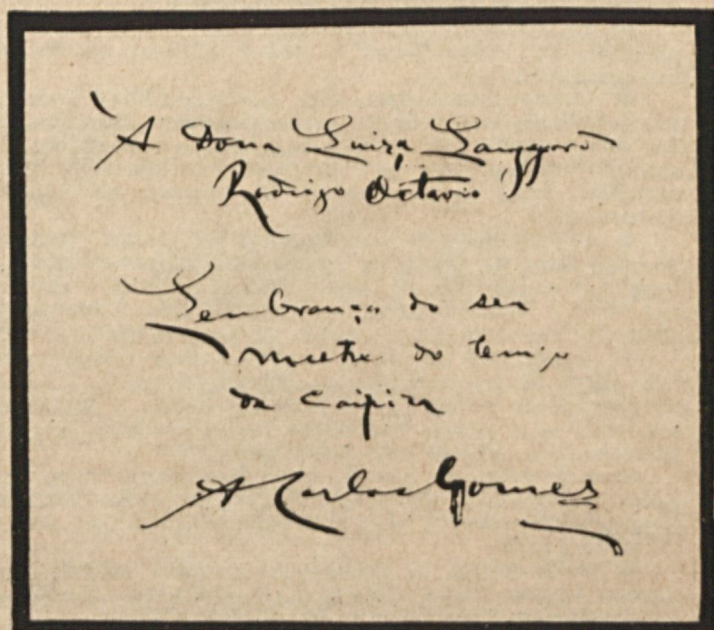 À Dona Luiza Langgaard
Rodrigo Octavio
Lembrança do seu
mestre do tempo
da Caipira
A Carlos Gomes